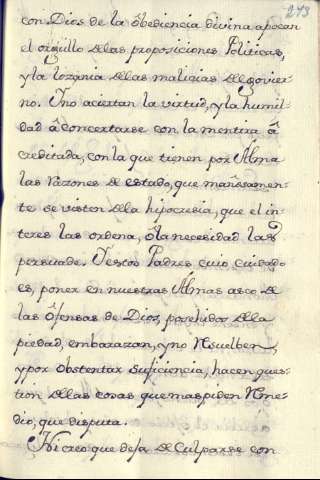 273
con Dios de la obediencia divina apocan
el orgullo de las proposiciones Politicas,
y la lozania de las malicias del govier-
no. Y no aciertan la virtud, y la humil-
dad â concertarse con la mentira â
creditada, con la que tienen por Alma
las Razones de estado, que mañosamen-
te se visten de la hipocresia, que el in-
teres las ordena, ô la necesidad las
persuade. Y estos Padres cuio cuidado
es, poner en nuestras Almas asco de
las ôfensas de Dios, por el hidor de la
piedad, embarazan, y no Resuelben,
y por obstentar suficiencia, hacen ques-
tion de las cosas que mas piden Reme-
dio, que disputa.
Ni creo que deja de Culparse con